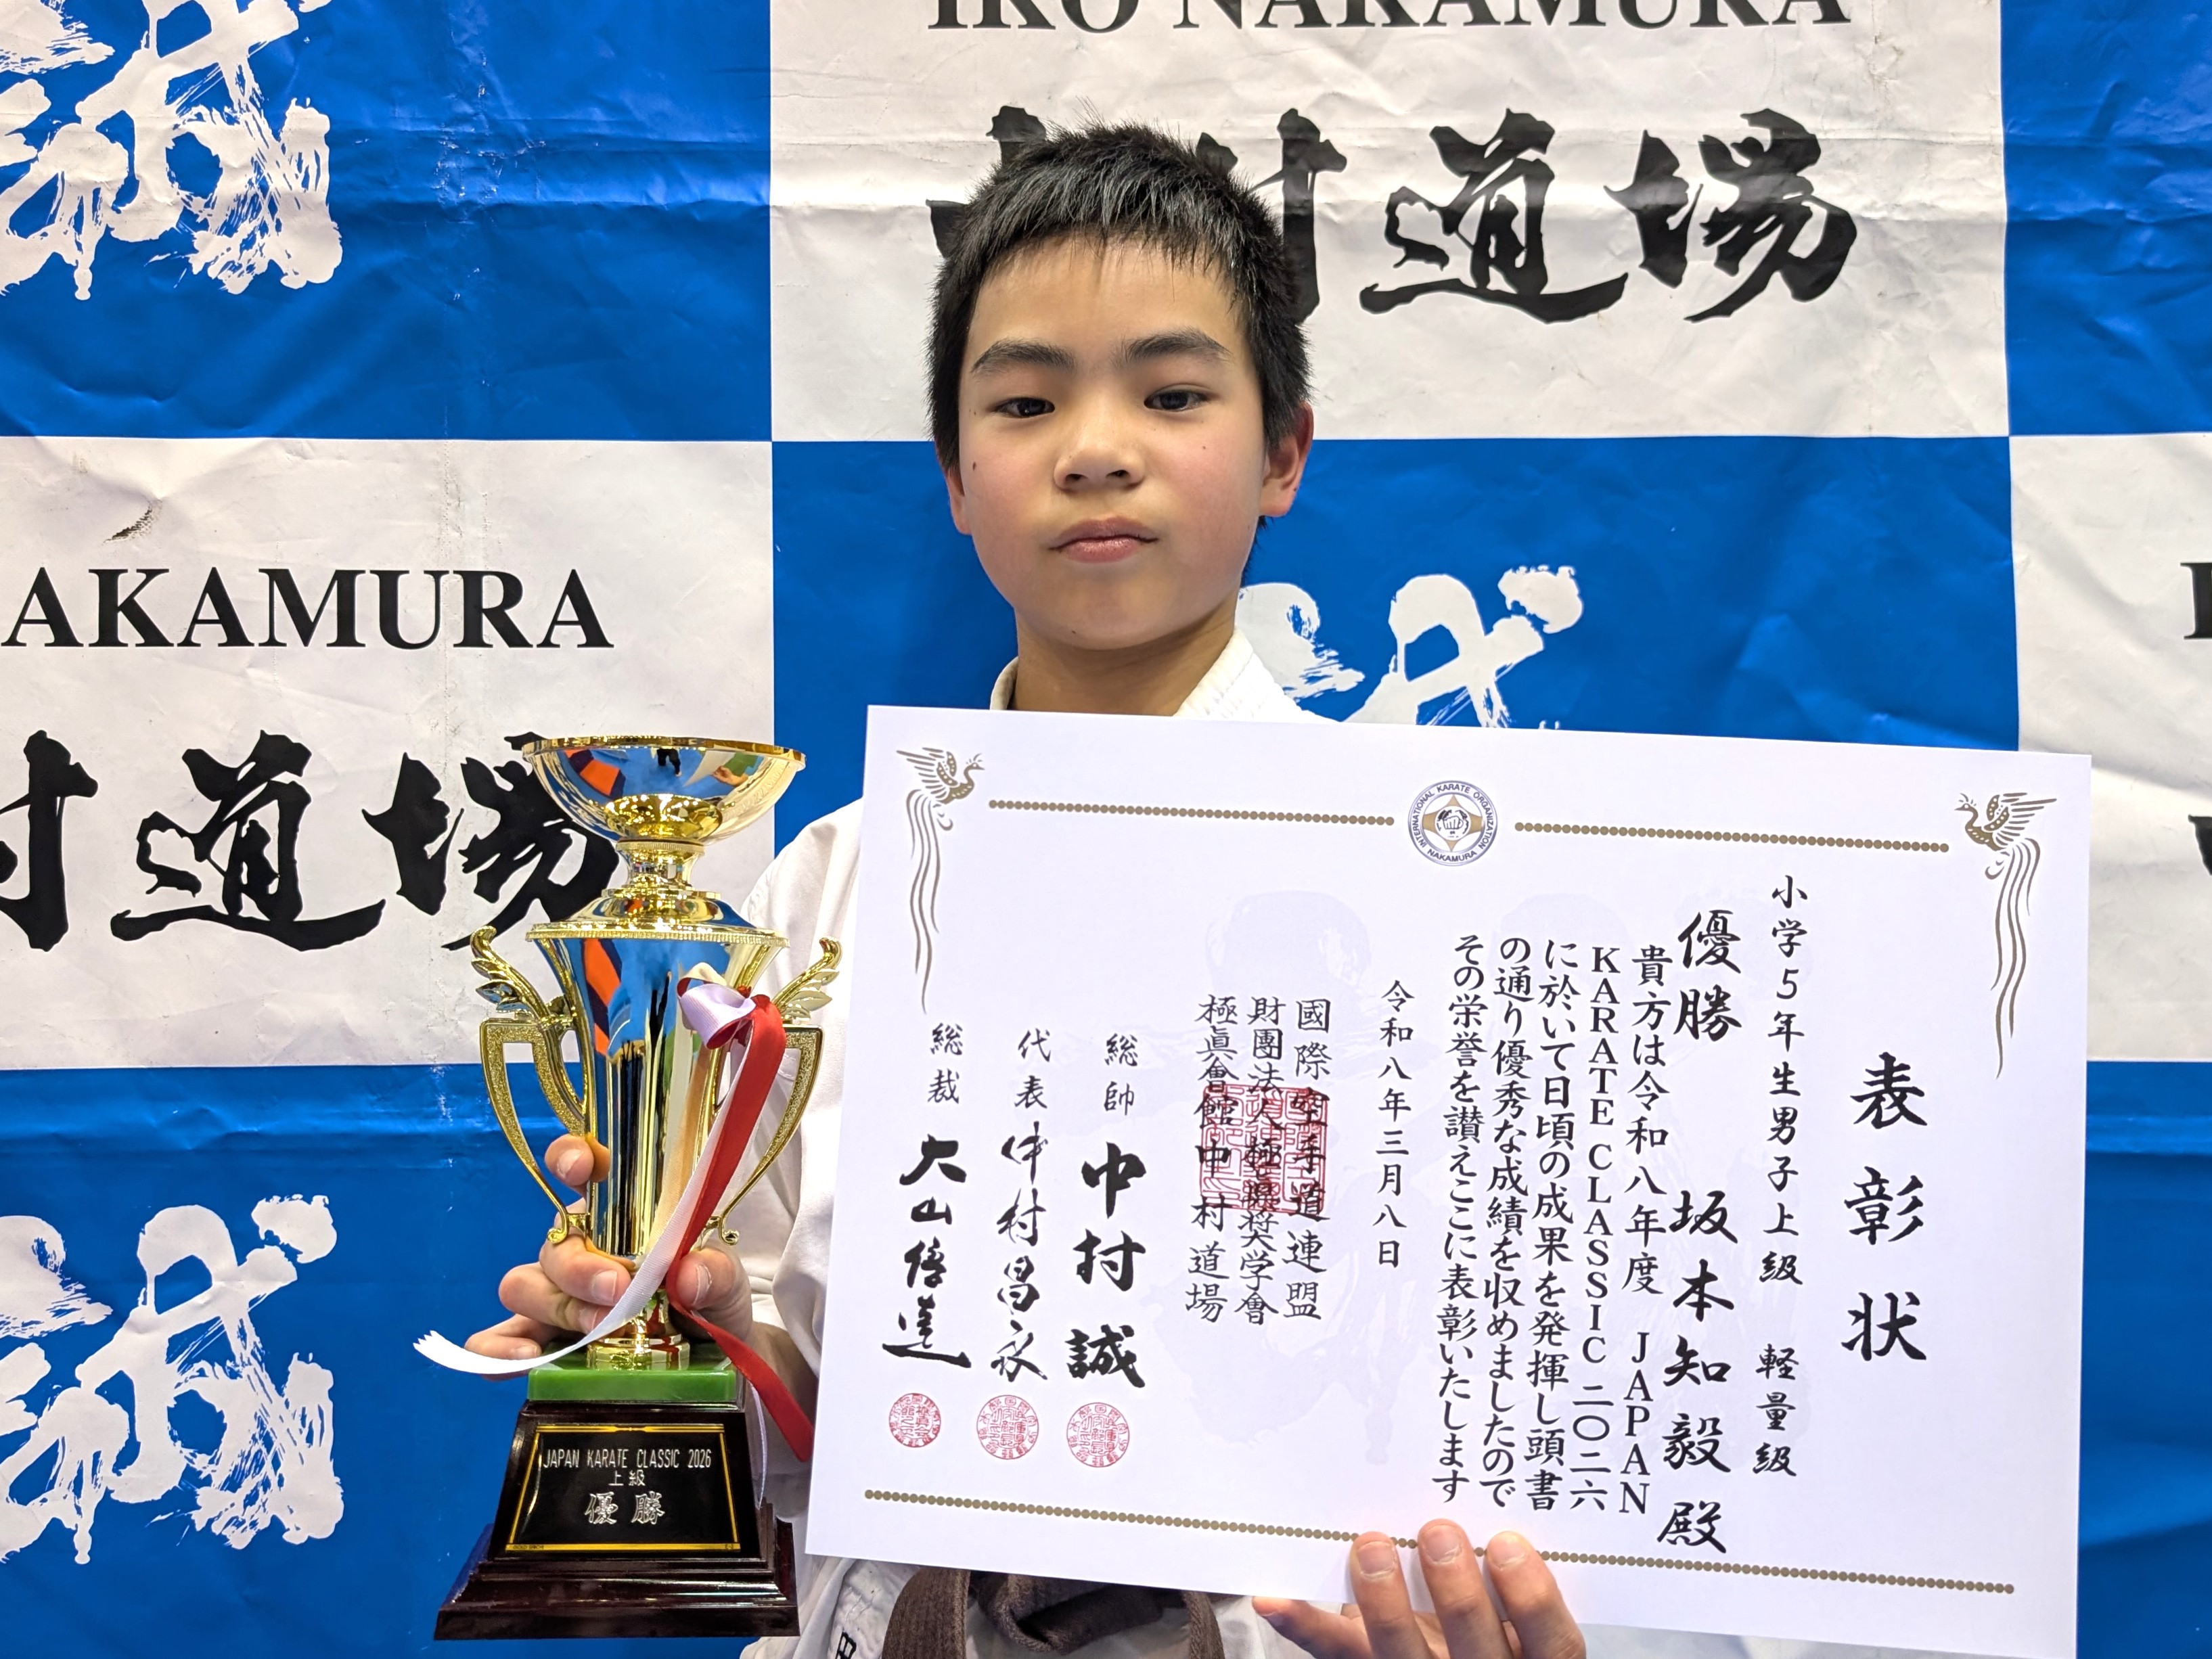 IKO NAKAMURA
村道場
AKAMURA
村道場
誠
誠
誠
INTERNATIONAL KARATE ORGANIZATION
NAKAMURA
表彰状
小学5年生男子上級 軽量級
優勝 坂本知毅殿
貴方は令和八年度 JAPAN
KARATE CLASSIC 二〇二六
に於いて日頃の成果を発揮し頭書
の通り優秀な成績を収めましたので
その栄誉を讃えここに表彰いたします
令和八年三月八日
國際空手道連盟
財團法人極真奨学會
極眞會館中村道場
総帥 中村誠
代表 中村昌永
総裁 大山倍達
JAPAN KARATE CLASSIC 2026
上級
優勝